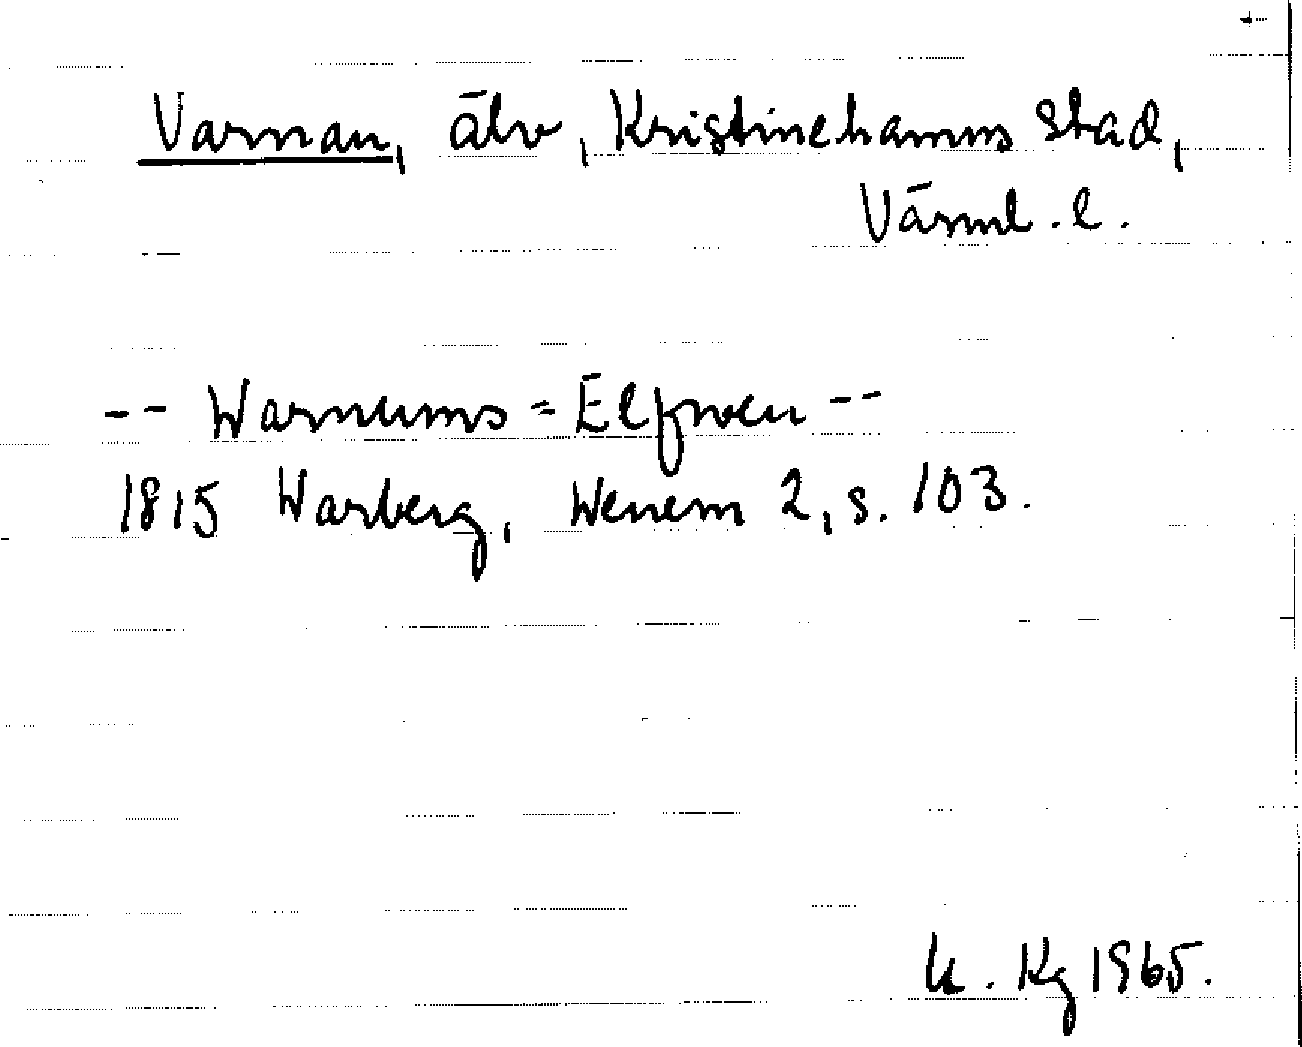 Varnan, älv, Kristinehamns stad,
Värml. l.
-- Warnums=Elfwen --
1815 Warberg, Wenern 2, s. 103.
K. Kg 1965.